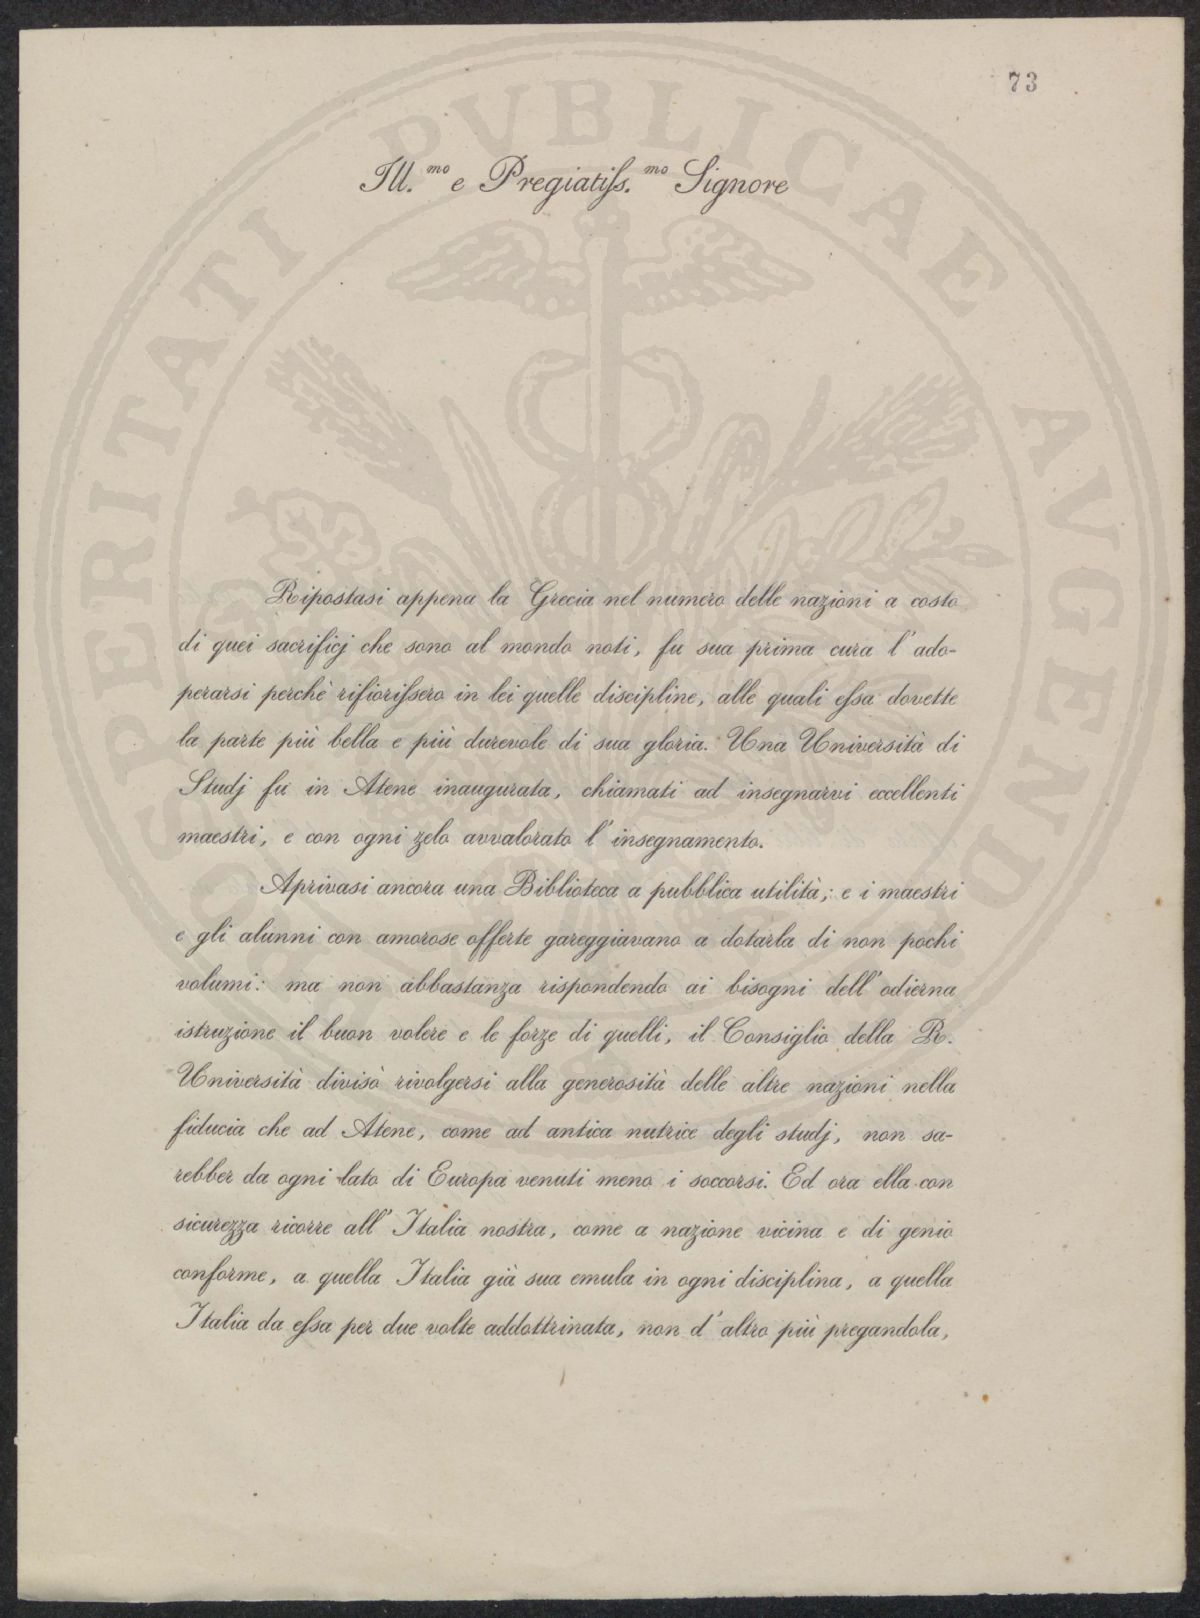 73
Ill.mo e Pregiatiſs.mo Signore
Ripostasi appena la Grecia nel numero delle nazioni a costo
di quei sacrificj che sono al mondo noti, fu sua prima cura l'ado-
perarsi perchè rifioriſsero in lei quelle discipline, alle quali eſsa dovette
la parte più bella e più durevole di sua gloria. Una Università di
Studj fu in Atene inaugurata, chiamati ad insegnarvi eccellenti
maestri, e con ogni zelo avvalorato l'insegnamento.
Aprivasi ancora una Biblioteca a pubblica utilità; e i maestri
e gli alunni con amorose offerte gareggiavano a dotarla di non pochi
volumi: ma non abbastanza rispondendo ai bisogni dell'odierna
istruzione il buon volere e le forze di quelli, il Consiglio della R.
Università divisò rivolgersi alla generosità delle altre nazioni nella
fiducia che ad Atene, come ad antica nutrice degli studj, non sa-
rebber da ogni lato di Europa venuti meno i soccorsi. Ed ora ella con
sicurezza ricorre all'Italia nostra, come a nazione vicina e di genio
conforme, a quella Italia già sua emula in ogni disciplina, a quella
Italia da eſsa per due volte addottrinata, non d'altro più pregandola,
PROSPERITATI PVBLICAE AVGENDAE